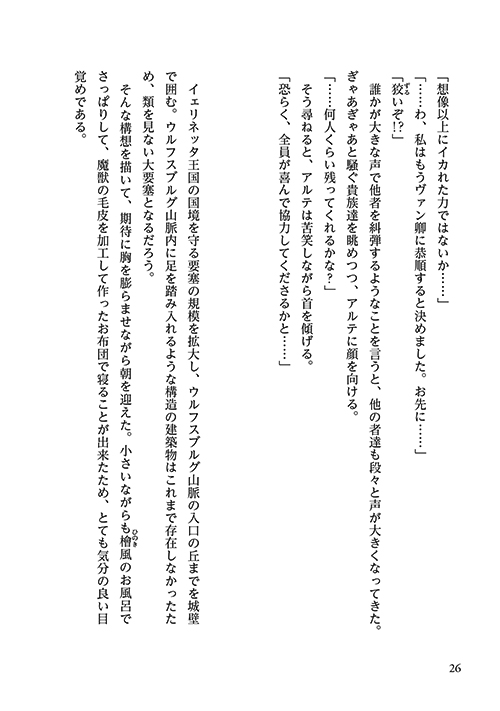 「想像以上にイカれた力ではないか……」
「……わ、私はもうヴァン卿に恭順すると決めました。お先に……」
「狡いぞ!?」
誰かが大きな声で他者を糾弾するようなことを言うと、他の者達も段々と声が大きくなってきた。
ぎゃあぎゃあと騒ぐ貴族達を眺めつつ、アルテに顔を向ける。
「……何人くらい残ってくれるかな?」
そう尋ねると、アルテは苦笑しながら首を傾げる。
「恐らく、全員が喜んで協力してくださるかと……」
イェリネッタ王国の国境を守る要塞の規模を拡大し、ウルフスブルグ山脈の入口の丘までを城壁
で囲む。ウルフスブルグ山脈内に足を踏み入れるような構造の建築物はこれまで存在しなかったた
め、類を見ない大要塞となるだろう。
そんな構想を描いて、期待に胸を膨らませながら朝を迎えた。小さいながらも檜風のお風呂で
さっぱりして、魔獣の毛皮を加工して作ったお布団で寝ることが出来たため、とても気分の良い目
覚めである。
26